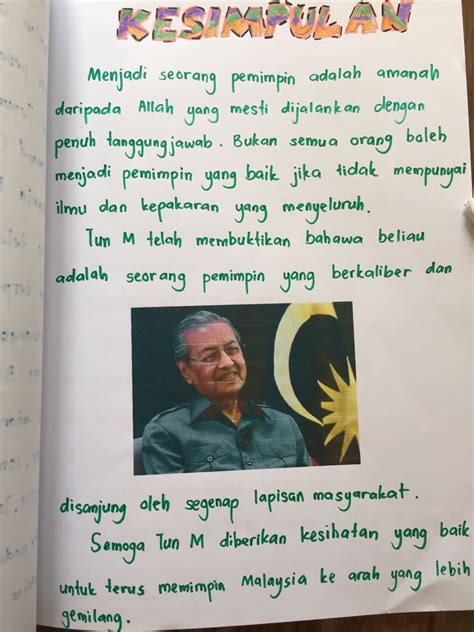 KESIMPULAN
Menjadi seorang pemimpin adalah amanah
daripada Allah yang mesti dijalankan dengan
penuh tanggungjawab. Bukan semua orang boleh
menjadi pemimpin yang baik jika tidak mempunyai
ilmu dan kepakaran yang menyeluruh.
Tun M telah membuktikan bahawa beliau
adalah seorang pemimpin yang berkaliber dan
disanjung oleh segenap lapisan masyarakat.
Semoga Tun M diberikan kesihatan yang baik
untuk terus memimpin Malaysia ke arah yang lebih
gemilang.